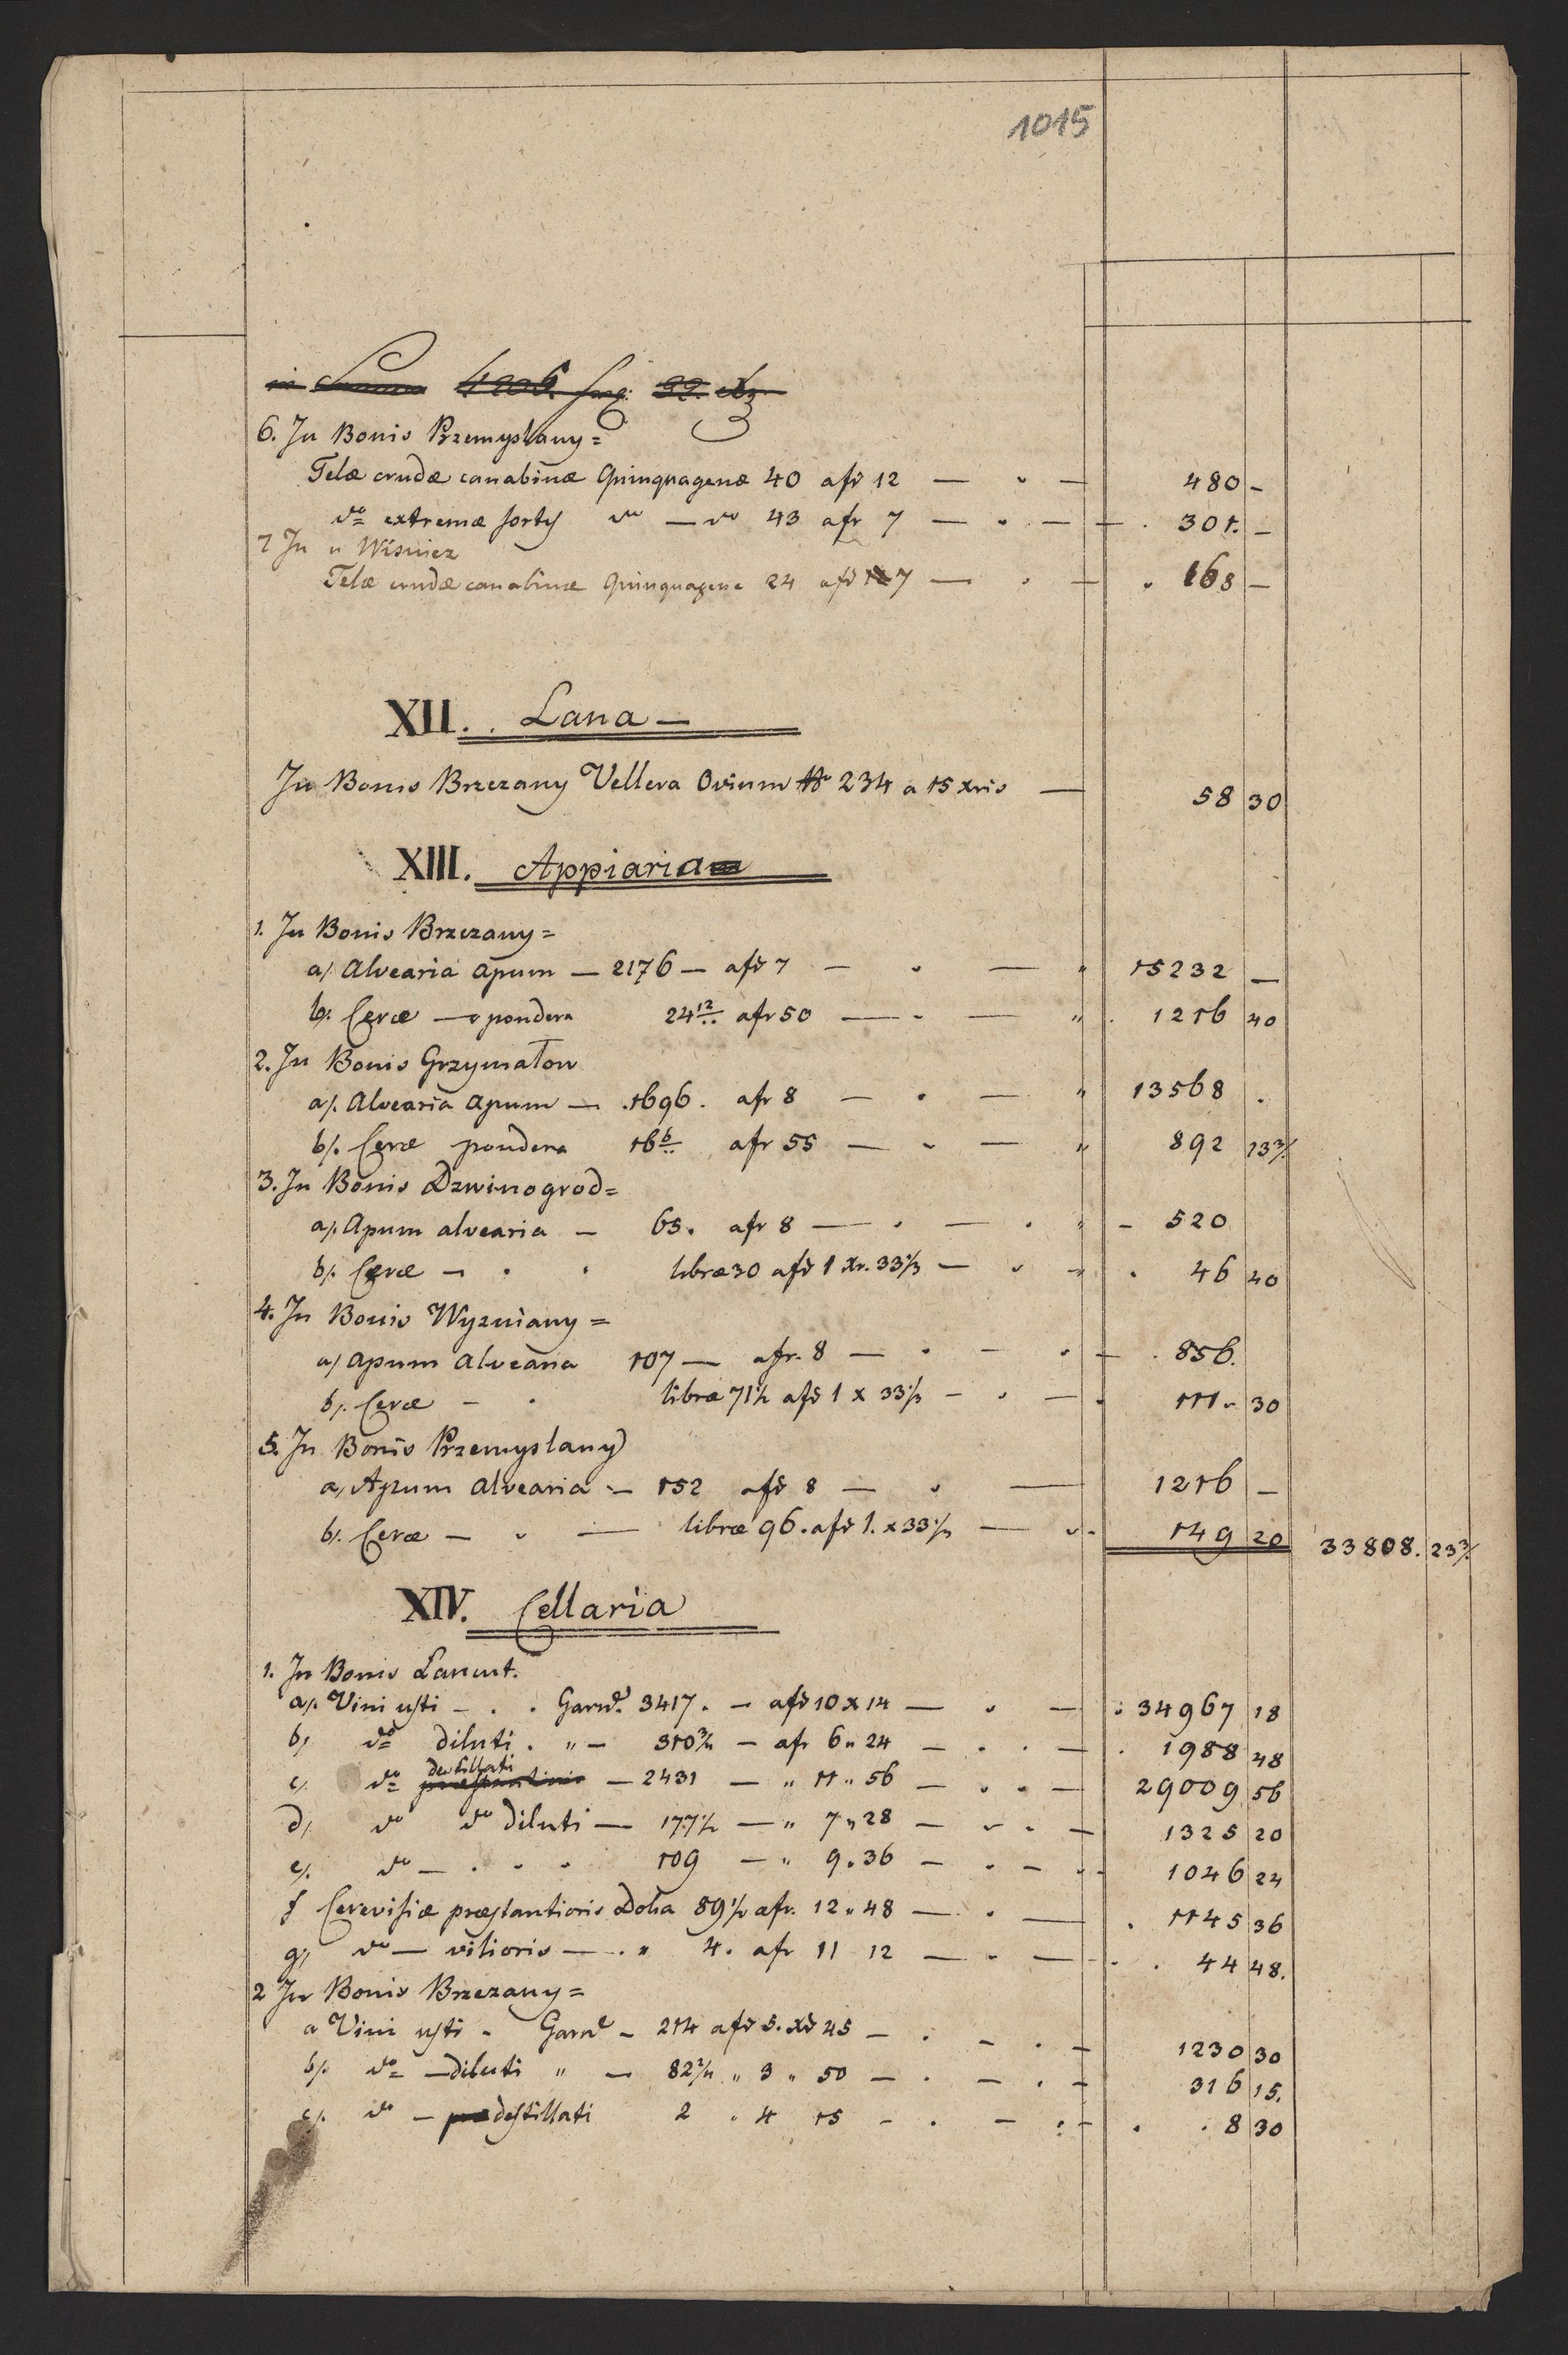 1015
in Summa 4206. fr: 32. Xr
6. In Bonis Przemyslany =
Telæ crudæ canabinæ Quinquagenæ 40 a fr 12 — „ — 480 -
do extremæ sortis do — do 43 a fr 7 — „ — 301. —
7 In „ Wisnicz
Telæ crudæ canabinæ Quinquagenæ 24 a fr 7 — „ — 168 —
XII. . Lana —
In Bonis Brzezany Vellera Ovium 234 a 15 xris — 58 30
XIII. Appiaria
1. In Bonis Brzezany =
a/. Alvearia Apum — 2176 — a fr 7 — „ — „ 15232 —
b/. Ceræ — pondera 24 12/.. a fr 50 — „ — „ 1216 40
2. In Bonis Grzymałow
a/. Alvearia Apum — 1696. a fr 8 — „ — „ 13568 .
b/. Ceræ pondera 16 6/.. a fr 55 — „ — „ 892 23 3/.
3. In Bonis Dzwinogrod =
a/. Apum alvearia — 65. a fr 8 — „ — „ 520
b/. Ceræ — . . libræ 30 a fr 1 Xr. 33 1/3 — „ — 46 40
4. In Bonis Wyzniany =
a/ Apum Alvearia 107 — a fr. 8 — „ — „ — 856.
b/. Ceræ — . libræ 71 1/2 a fr 1 x 33 1/3 — „ — 111 „ 30
5. In Bonis Przemyslany
a/ Apum Alvearia — 152 a fr 8 — „ — 1216 —
b/. Ceræ — „ — libræ 96. a fr 1. x 33 1/3 — „ 149 20 33808. 23 3/.
XIV. Cellaria
1. In Bonis Lancut.
a/. Vini usti — . . Garn. 3417. — a fr 10 x 14 — „ — 34967 18
b/ do diluti . „ — 310 3/4 — a fr 6 „ 24 — . . — 1988 48
c/. do destillati — 2431 — „ 11 „ 56 — „ „ — 29009 56
d/ do do diluti — 177 1/2 — „ 7 „ 28 — „ . — 1325 20
e/. do — . . . 109 — „ 9. 36 — . — „ 1046 24
f Cerevisiæ præstantioris Dolia 89 1/2 a fr. 12 „ 48 — . — 1145 36
g/ do — vilioris — . „ 4. a fr 11 12 — „ — 44 48.
2 In Bonis Brzezany =
a Vini usti - Garn - 214 a fr 5. Xr 45 — . — . — 1230 30
b/. do — diluti „ — 82 2/4 „ 3 „ 50 — . — . — 316 15.
c/. do — destillati 2 „ 4 15 — . — . 8 30